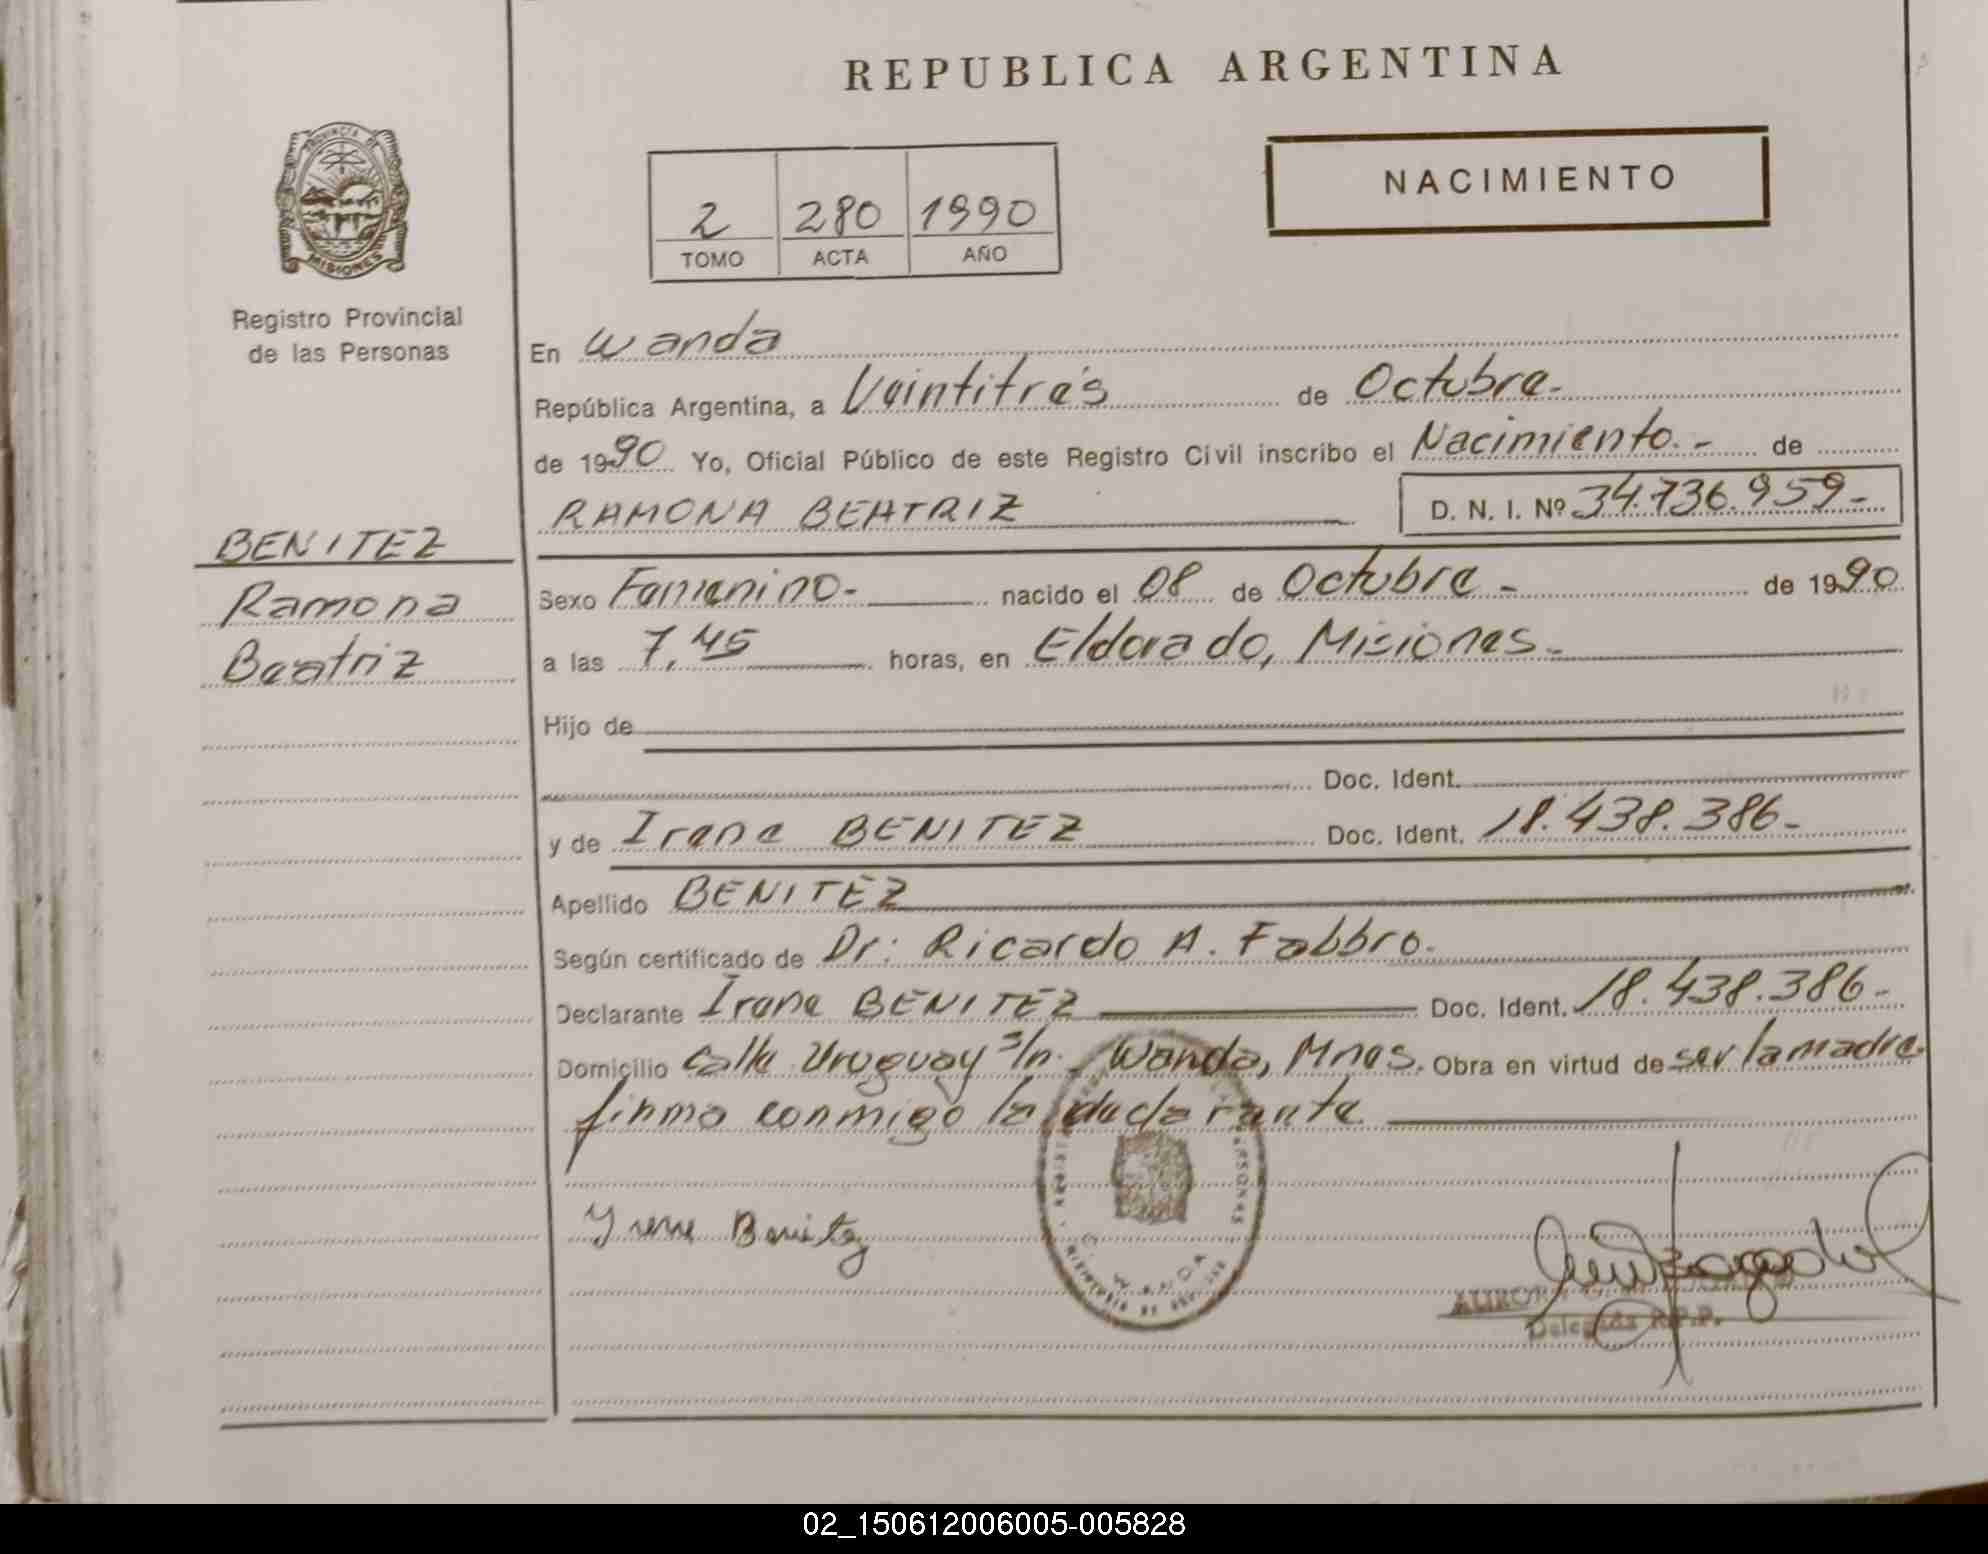 REPUBLICA ARGENTINA
PROVINCIA DE
MISIONES
Registro Provincial
de las Personas
2 280 1990
TOMO ACTA AÑO
NACIMIENTO
En Wanda
República Argentina, a Veintitrés de Octubre.-
de 1990 Yo, Oficial Público de este Registro Civil inscribo el Nacimiento.- de
RAMONA BEATRIZ D. N. I. Nº 34.736.959-
BENITEZ
Ramona
Beatriz
Sexo Femenino.- nacido el 08 de Octubre - de 1990
a las 7,45 horas, en Eldorado, Misiones.-
Hijo de
Doc. Ident.
y de Irene BENITEZ Doc. Ident. 18.438.386-
Apellido BENITEZ
Según certificado de Dr: Ricardo A. Fabbro.
Declarante Irene BENITEZ Doc. Ident. 18.438.386-
Domicilio Calle Uruguay s/n. Wanda, Mnes. Obra en virtud de ser la madre.
firma conmigo la declarante
Yrene Benitez
WANDA
AURORA
Delegada R.P.P.
02_150612006005-005828